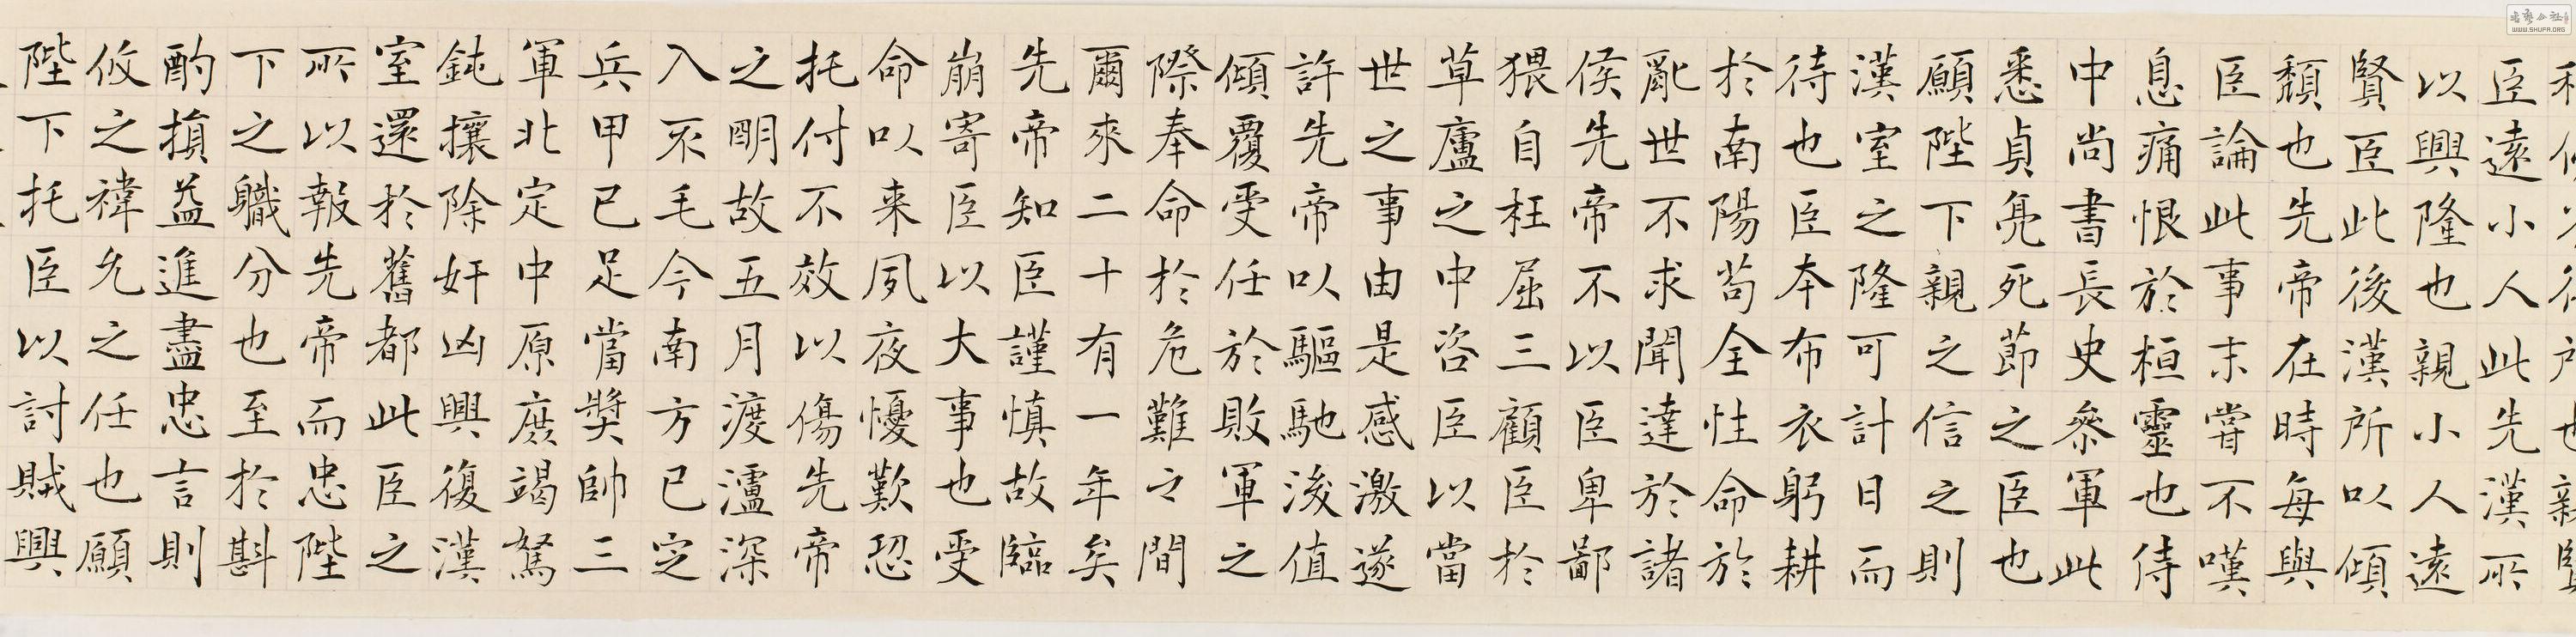 臣遠小人此先漢所
以興隆也親小人遠
賢臣此後漢所以傾
頹也先帝在時每與
臣論此事末嘗不嘆
息痛恨於桓靈也侍
中尚書長史參軍此
悉貞亮死節之臣也
願陛下親之信之則
漢室之隆可計日而
待也臣本布衣躬耕
於南陽苟全性命於
亂世不求聞達於諸
侯先帝不以臣卑鄙
猥自枉屈三顧臣於
草廬之中咨臣以當
世之事由是感激遂
許先帝以驅馳後值
傾覆受任於敗軍之
際奉命於危難之間
爾來二十有一年矣
先帝知臣謹慎故臨
崩寄臣以大事也受
命以来夙夜懮歎恐
托付不效以傷先帝
之明故五月渡瀘深
入不毛今南方已定
兵甲已足當獎帥三
軍北定中原庶竭駑
鈍攘除奸凶興復漢
室還於舊都此臣之
所以報先帝而忠陛
下之職分也至於斟
酌損益進盡忠言則
攸之禕允之任也願
陛下托臣以討賊興
WWW.SHUFA.ORG